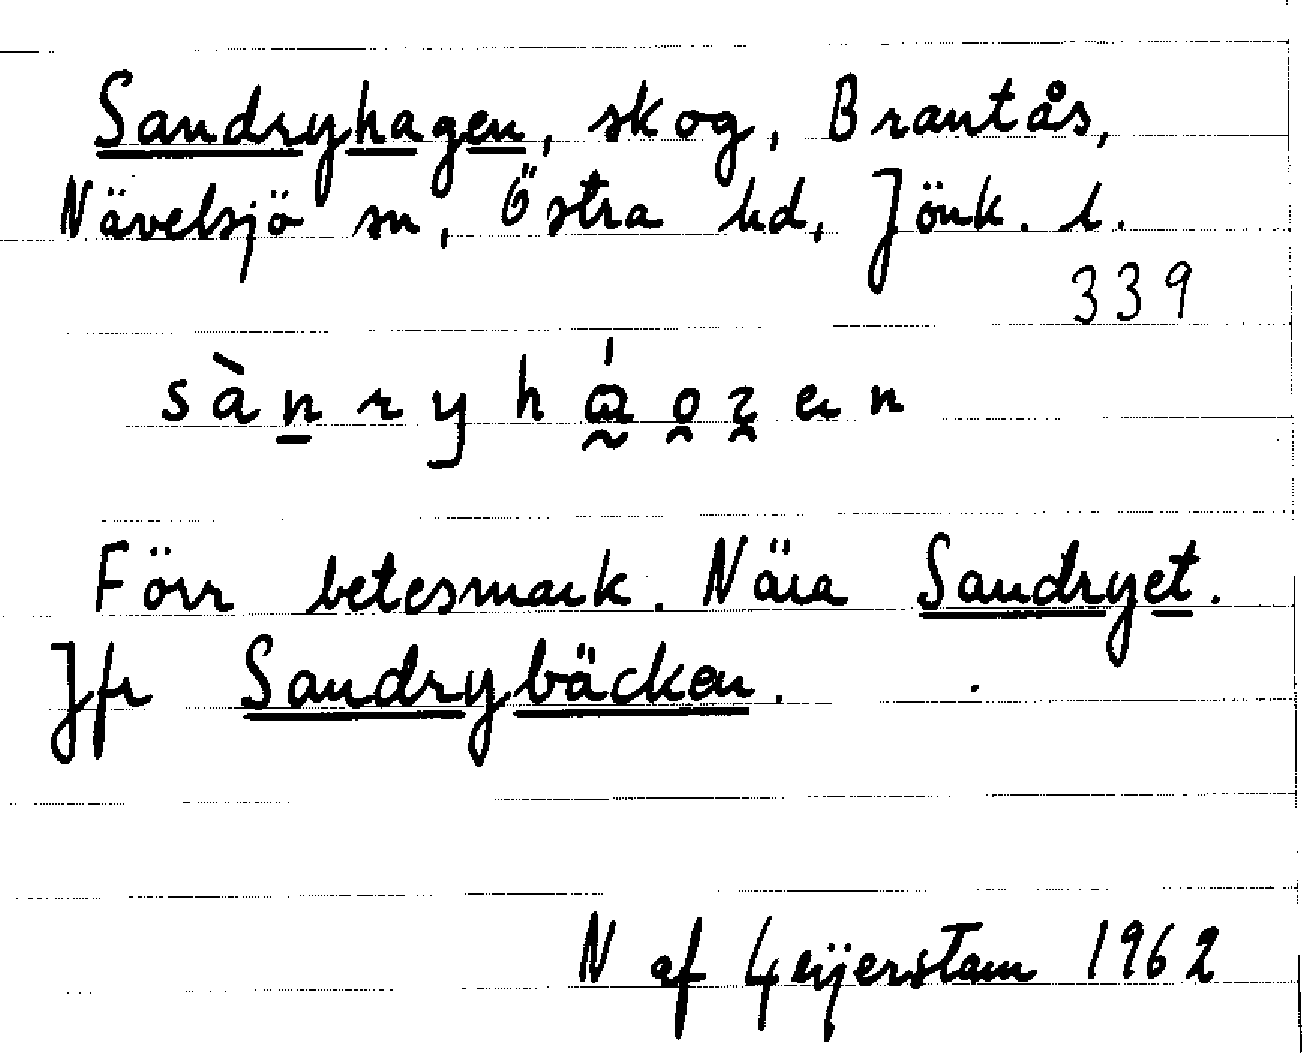 Sandryhagen, skog, Brantås,
Nävelsjö sn, Östra hd, Jönk. l.
339
sànryháozen
Förr betesmark. Nära Sandryet.
Jfr Sandrybäcken.
N af Geijerstam 1962